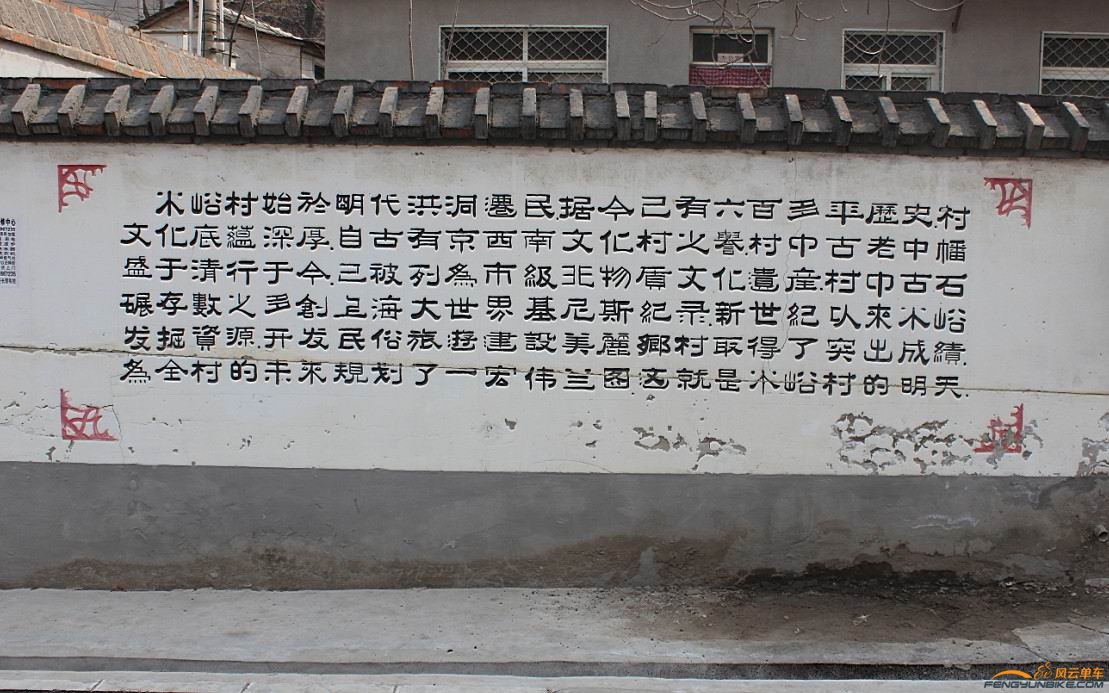 水峪村始於明代洪洞遷民据今己有六百多年歷史.村
文化底蘊深厚.自古有京西南文化村之譽.村中古老中幡
盛于清行于今.己被列為市級北物質文化遺産.村中古石
碾存數之多創上海大世界基尼斯紀录.新世紀以來水峪
发掘資源.开发民俗旅遊畫設美麗鄉村取得了突出成績
為全村的未來規划了一宏伟兰图.這就是水峪村的明天.
风云单车
FENGYUNBIKE.COM